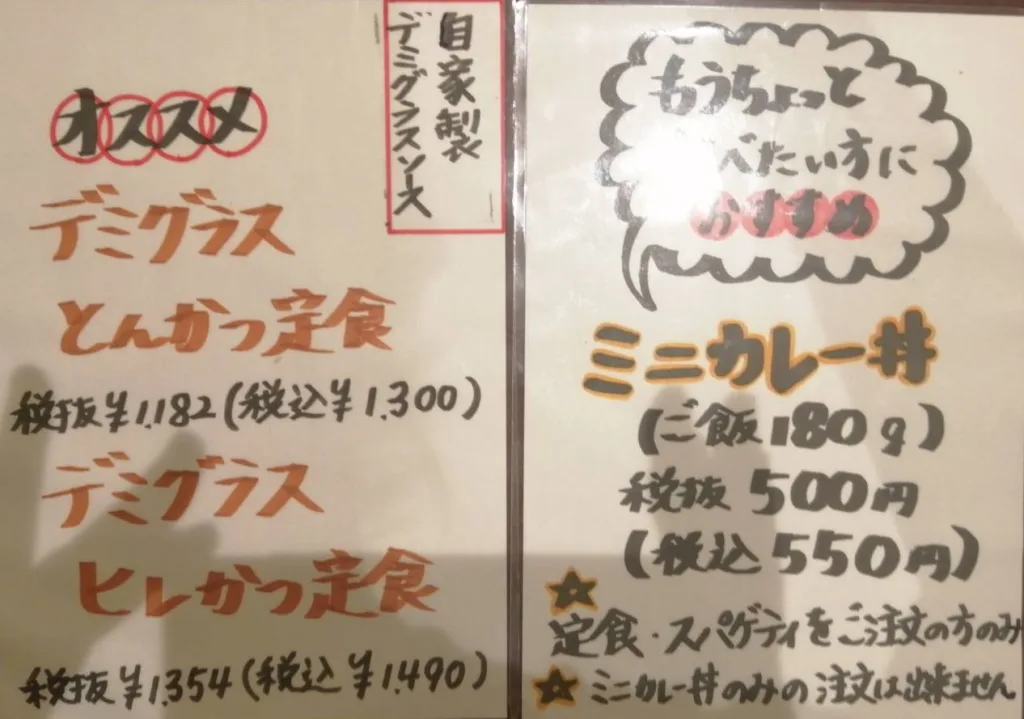 自家製
デミグラスソース
オススメ
デミグラス
とんかつ定食
税抜¥1,182(税込¥1,300)
デミグラス
ヒレかつ定食
税抜¥1,354(税込¥1,490)
もうちょっと
べたい方に
おすすめ
ミニカレー丼
(ご飯180g)
税抜500円
(税込550円)
☆
定食・スパゲティをご注文の方のみ
☆ミニカレー丼のみの注文は出来ません